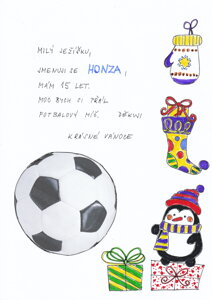 MILÝ JEŽÍŠKU,
JMENUJI SE HONZA,
MÁM 15 LET.
MOC BYCH CI PŘÁL
FOTBALOVÝ MÍČ. DĚKUJI
KRÁSNÉ VÁNOCE